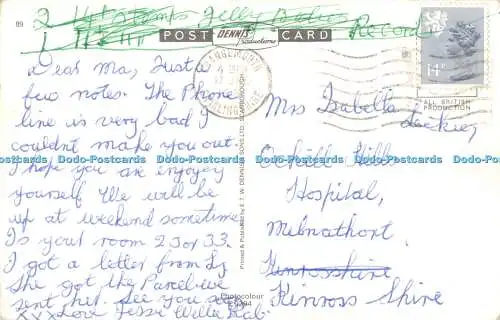 2 1st Stamps Jelly Babies
1 Record
89
POST DENNIS Productions CARD
GRANGEMOUTH
STIRLINGSHIRE
14P
ALL BRITISH
PRODUCTION
Dear Ma, Just a
few notes. The Phone
line is very bad I
couldnt make you out.
I hope you are enjoyey
yourself We will be
up at weekend sometime
Is your room 23 or 33.
I got a letter from Liz
She got the Parcel we
sent her. See you soon
XXX Love Jesse Willie Rab.
Printed & Published by E. T. W. DENNIS & SONS LTD. SCARBOROUGH
Photocolour
Mrs Isabella
Leckie,
Ochill Hills
Hospital,
Milnathort,
Kinrosshire
Kinross Shire
Dodo-Postcards Dodo-Postcards Dodo-Postcards Dodo-Postcards Dodo-Postcards Dodo-Postcards